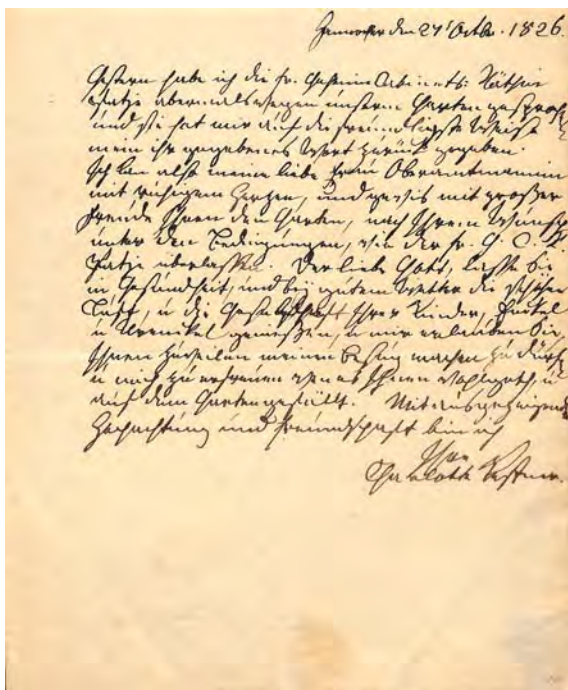 Hannover den 27t Octbr. 1826.
Gestern habe ich die Fr. Geheime Cabinets: Räthin
Patje abermals wegen unserm Garten gesproch
und sie hat mir auf die freundligste Weise
mein ihr gegebenes Wort zurück gegeben.
Ich kan also meine liebe Frau Oberamtmannin
mit ruhigem Herzen, und gewis mit großer
Freude Ihnen den Garten, nach Ihrem Wunsch
unter den Bedingungen, wie der Fr. G. C. R.
Patje überlassen. Der liebe Gott, lasse Sie
in Gesundheit, und bey gutem Wetter die schöne
Luft, u die Gesellschaft Ihrer Kinder, Enkel
u Urenkel genießen, u mir erlauben Sie,
Ihnen zuweilen meinen Besuch machen zu dürf
u mich zu erfreuen wen es Ihnen wohlgeth, u
auf dem Garten gefällt. Mit ausgezeigneter
Hochachtung und Freundschaft bin ich
Ihre
Charlotte Kestner.